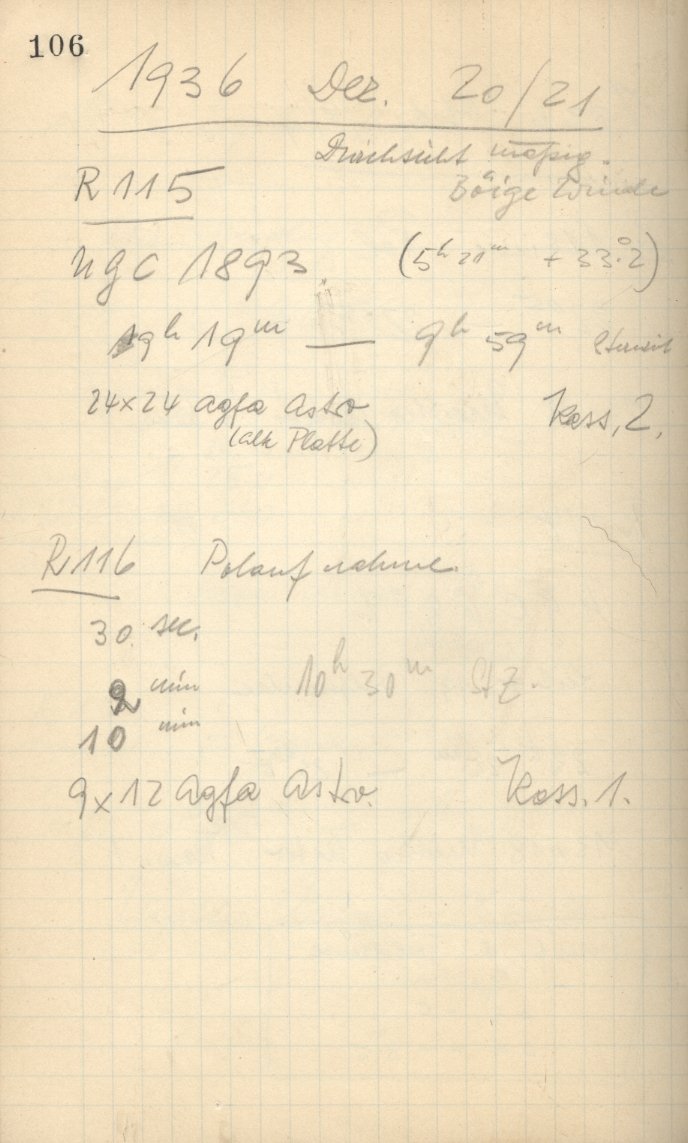 106
1936 Dez. 20/21
Durchsicht mäßig.
R 115 Böige Winde
NGC 1893. (5h 21m + 33°.2)
9h 19m — 9h 59m
24×24 Agfa Astro Kass. 2.
(alte Platte)
R 116 Polaufnahme.
30 sec.
2 min 10h 30m StZ.
10 min
9×12 Agfa Astro. Kass. 1.